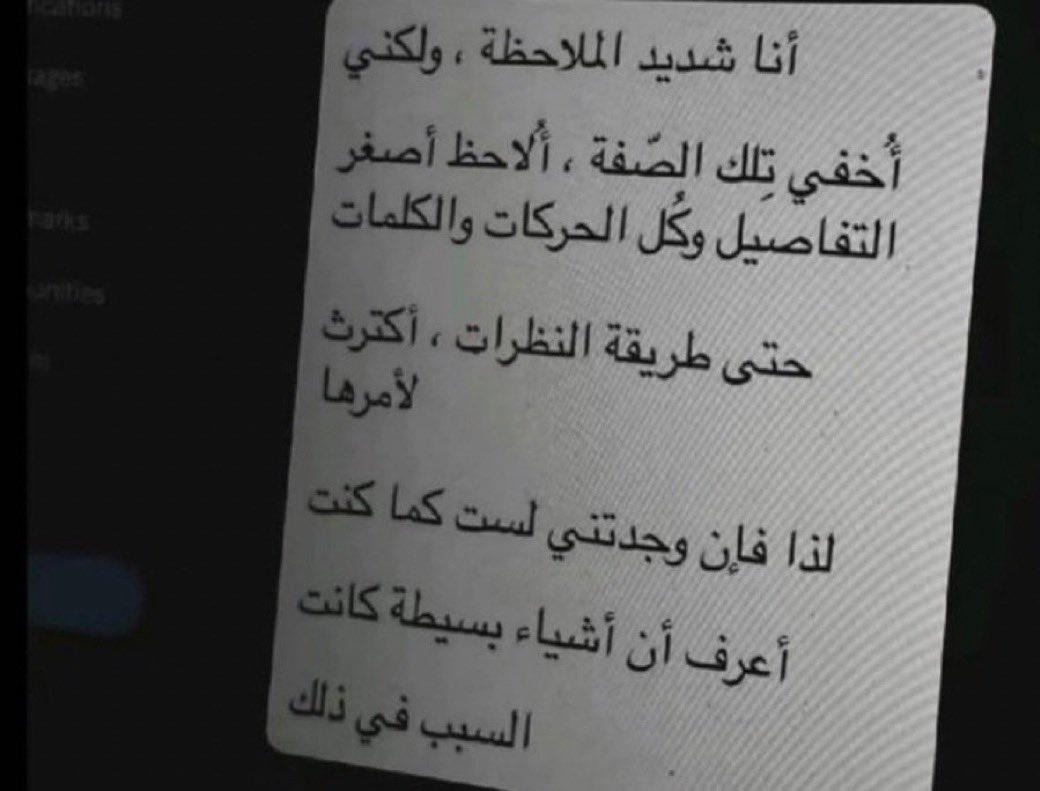 أنا شديد الملاحظة ، ولكني
أُخفي تِلك الصّفة ، أُلاحظ أصغر
التفاصيل وكُل الحركات والكلمات
حتى طريقة النظرات ، أكترث
لأمرها
لذا فإن وجدتني لست كما كنت
أعرف أن أشياء بسيطة كانت
السبب في ذلك